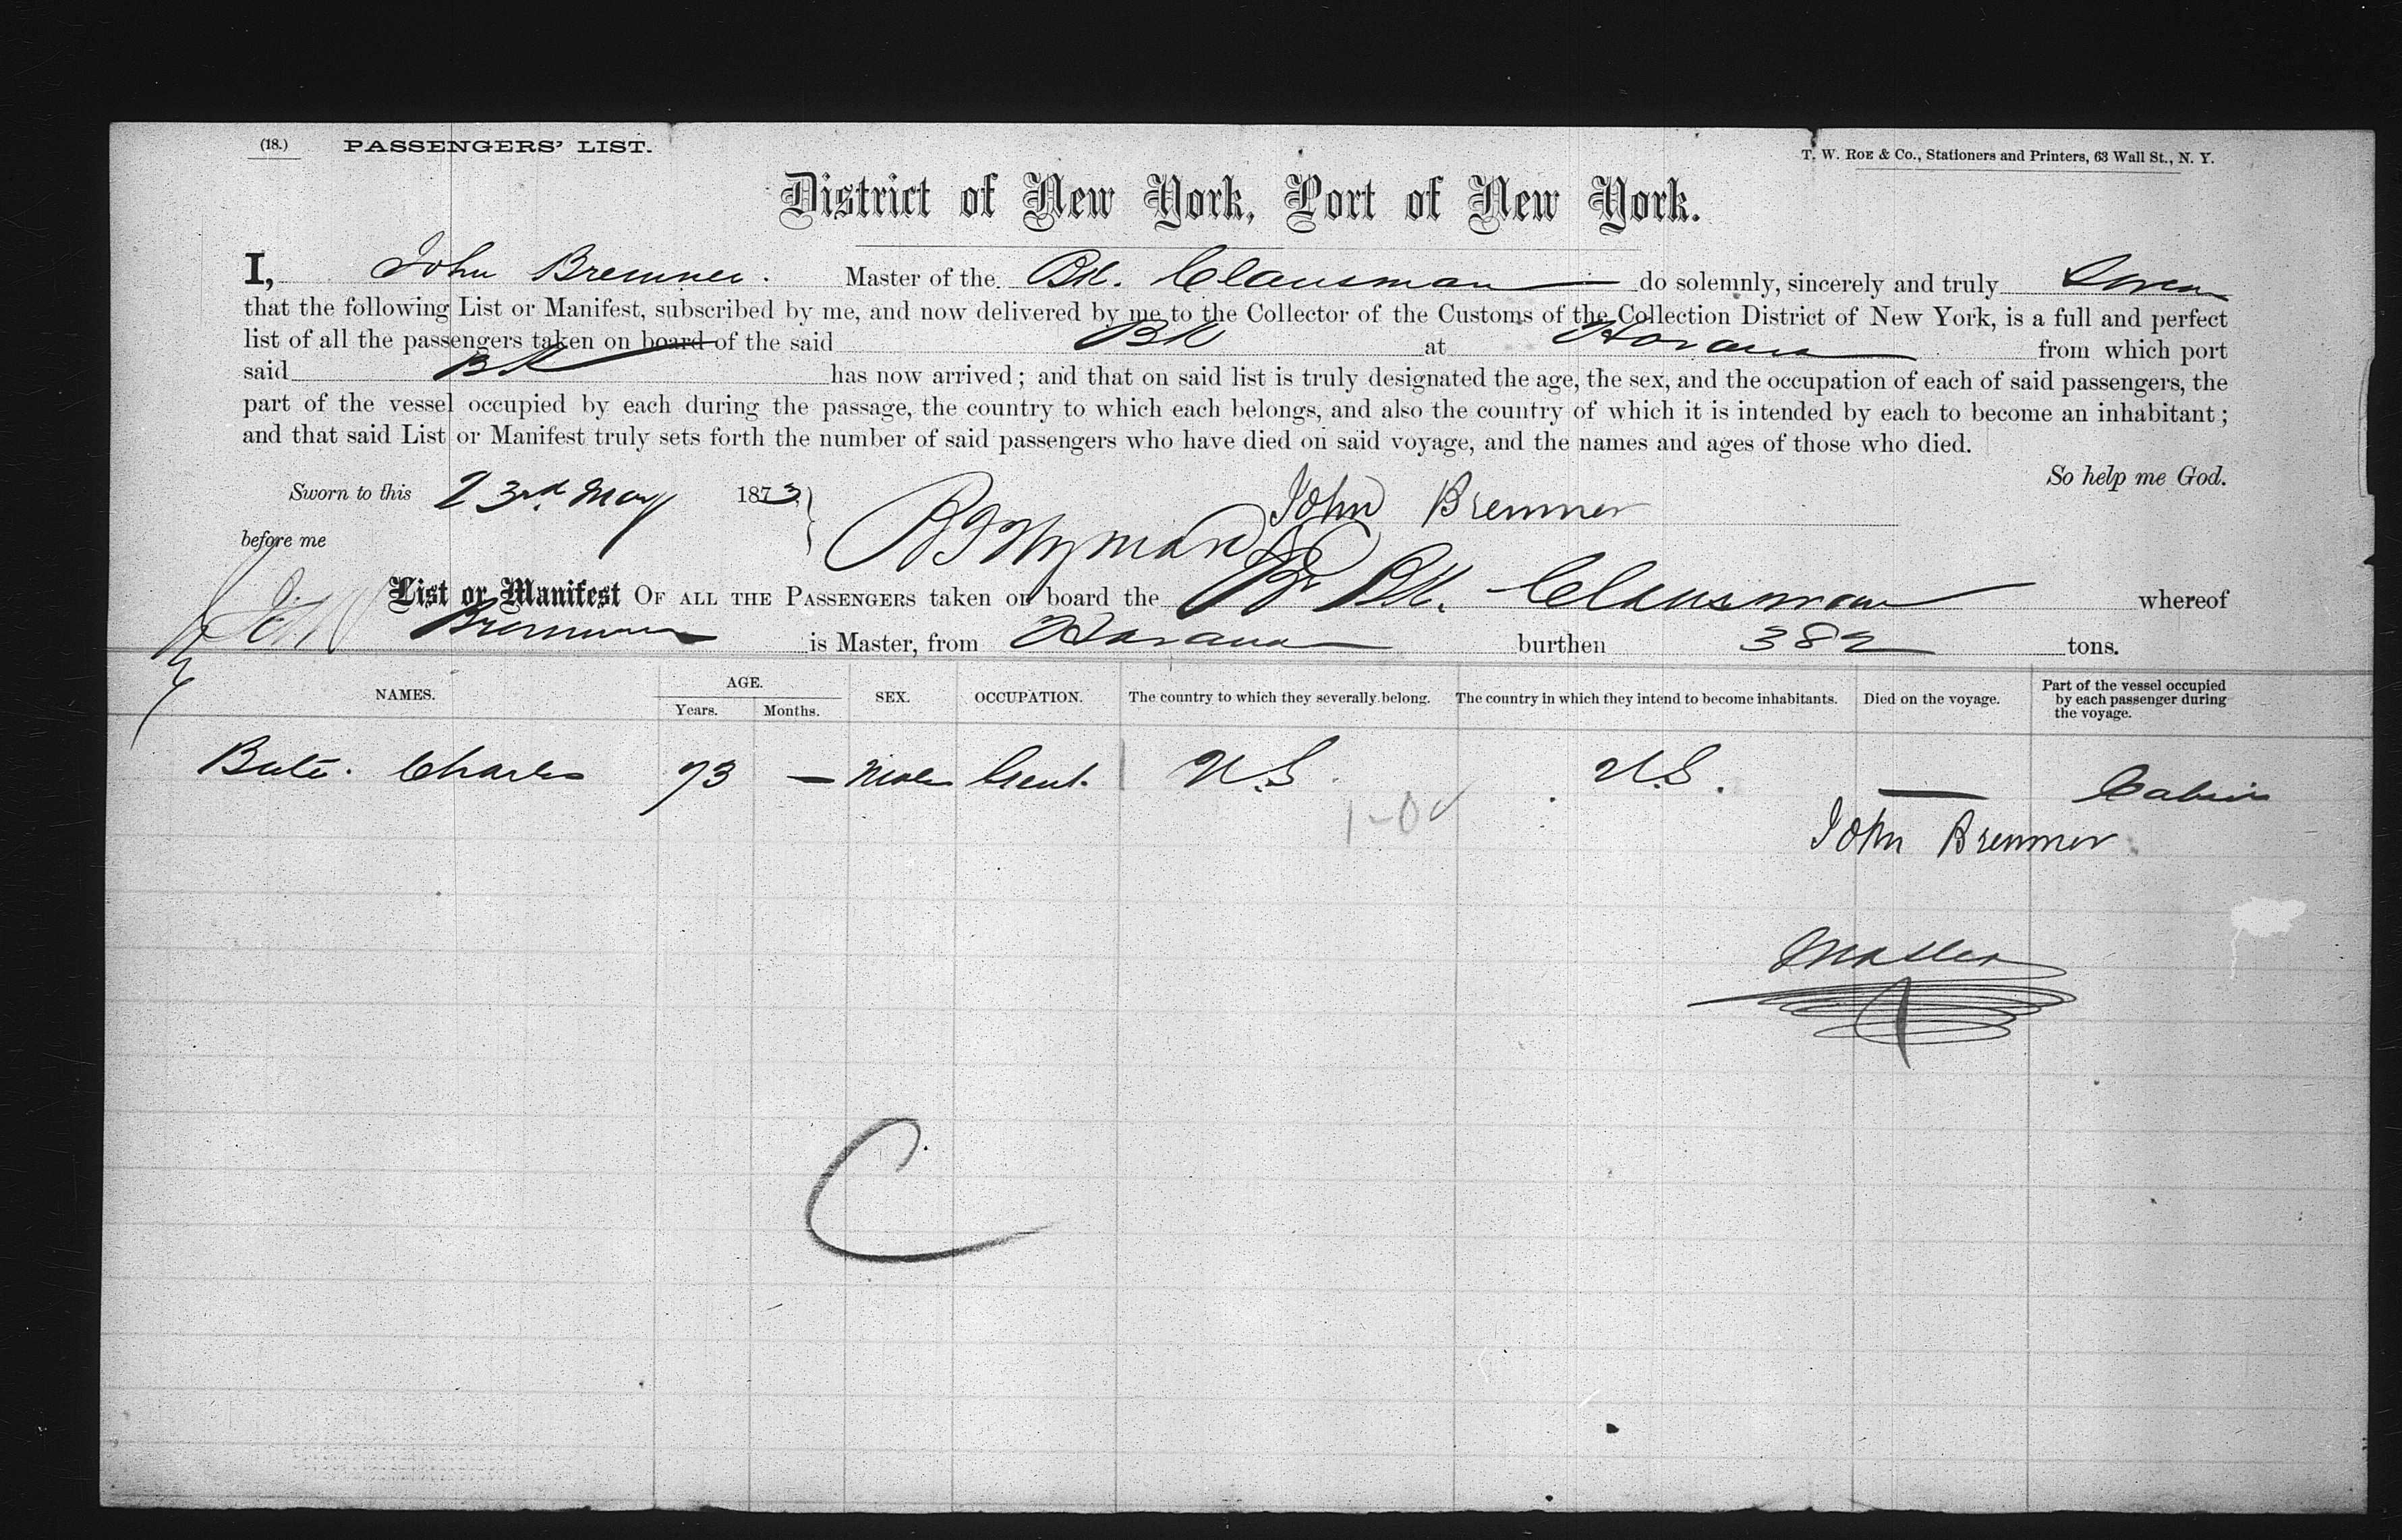 (18.) PASSENGERS' LIST. T. W. ROE & Co., Stationers and Printers, 63 Wall St., N. Y.
District of New York, Port of New York.
I, John Bremner. Master of the Bk. Clansman do solemnly, sincerely and truly Swear
that the following List or Manifest, subscribed by me, and now delivered by me to the Collector of the Customs of the Collection District of New York, is a full and perfect
list of all the passengers taken on board of the said Bk at Havana from which port
said Bk has now arrived; and that on said list is truly designated the age, the sex, and the occupation of each of said passengers, the
part of the vessel occupied by each during the passage, the country to which each belongs, and also the country of which it is intended by each to become an inhabitant;
and that said List or Manifest truly sets forth the number of said passengers who have died on said voyage, and the names and ages of those who died.
So help me God.
Sworn to this 23rd May 1873 John Bremner
before me
List or Manifest OF ALL THE PASSENGERS taken on board the Br Bk. Clansman whereof
Bremner is Master, from Havana burthen 382 tons.
NAMES. AGE. Years. Months. SEX. OCCUPATION. The country to which they severally belong. The country in which they intend to become inhabitants. Died on the voyage. Part of the vessel occupied by each passenger during the voyage.
Charles 73 — Male Gent. U.S. U.S. — Cabin
1-0 ✓
John Bremner
Master
C